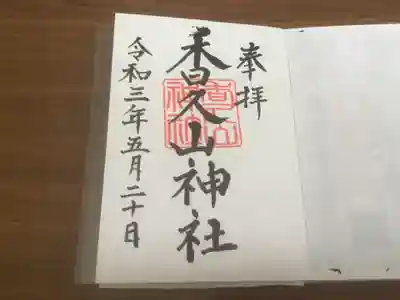 奉拝
香久山神社
令和三年五月二十日